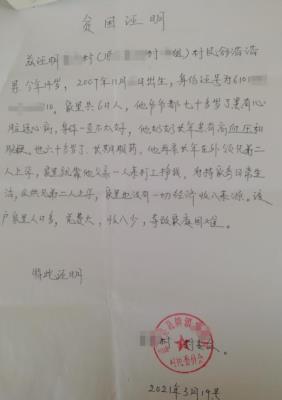 贫困证明
兹证明 村(原 村 组)村民
男 今年14岁,2007年11月 日出生,身份证号为6101
10。家里共6口人,他爷爷都七十多岁了患有心
脏冠心病,身体一直不太好,他奶奶长年患有高血压和
眼疾。也六十多岁了、长期服药,他母亲长年在外领兄弟二
人上学,家里就靠他父亲一人来打工挣钱,为持家务日常生
活,及供兄弟二人上学,家里也没有一切经济收入来源。该
户家里人口多,花费大,收入少,导致家庭困难
特此证明
村 委会。
村民委员会
2021年3月19号